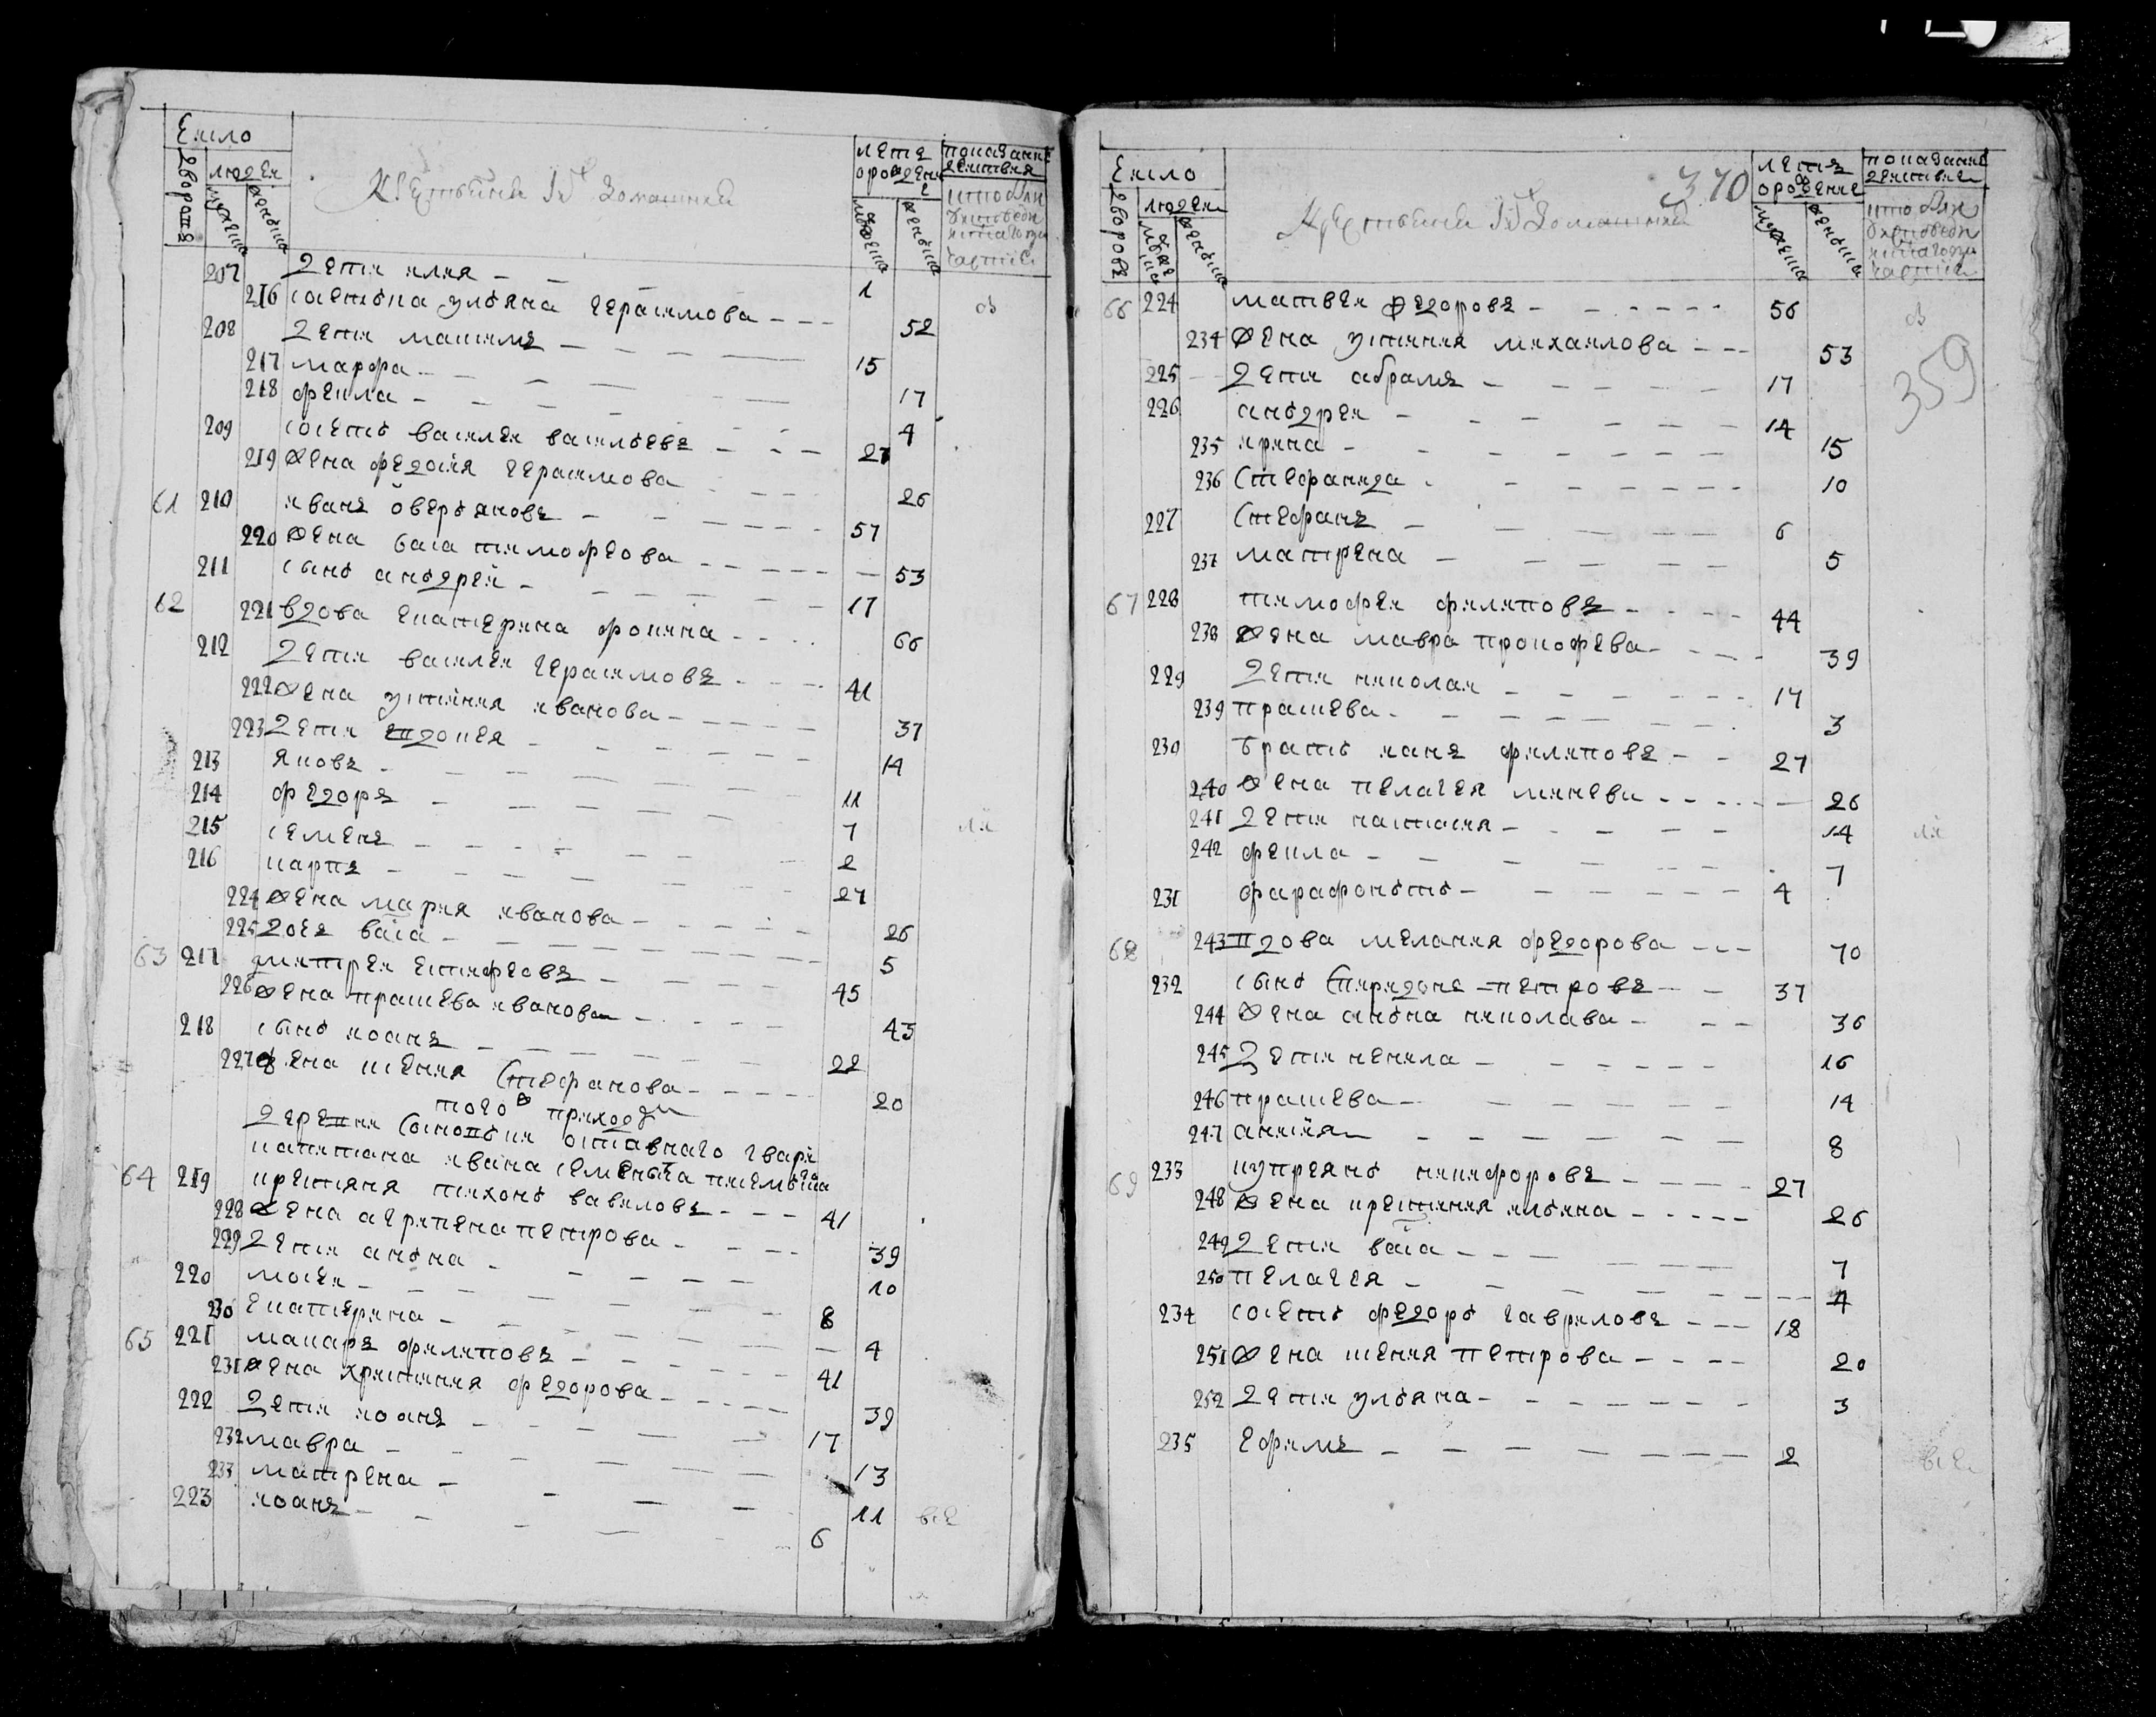 Число
дворовъ
людей
мужеска
женска
Крестьяне и домашния
летъ
о рождении
мужеска
женска
показание
действия
кто былъ
207 дети илия 1
216 соседка ульяна герасимова 52
208 дети максимъ 15
217 марфа 17
218 фекла 4
209 соседъ василеи васильевъ 27
219 жена федосия герасимова 26
61 210 иванъ оверьяновъ 57
220 жена васа тимофеова 53
211 сынъ андрей 17
62 221 вдова екатерина фокина 66
212 дети василеи герасимовъ 41
222 жена устиния иванова 37
223 дети 14
213 яковъ 11
214 федоръ 7
215 семенъ 2
216 карпъ 27
224 жена мария иванова 26
225 дочь васа 5
63 217 дмитреи 45
226 жена прасковя иванова 43
218 сынъ иоанъ 22
227 жена ксения стефанова 20
того ж прихода
деревни отставного гвари
капитана ивана
64 219 крестяня тихонъ вавиловъ 41
228 жена агрипена петрова 39
229 дети анна 10
220 мосеи 8
230 екатерина 4
65 221 макаръ филиповъ 41
231 жена христиния федорова 39
222 дети иоанъ 17
232 мавра 13
233 матрена 11
223 иоанъ 6
все
Число
дворовъ
людеи
мужеска
женска
Крестьяне и домашния
370
летъ
о рождение
мужеска
женска
показание
действие
кто былъ
359
66 224 матвеи федоровъ 56
234 жена устиния михаилова 53
225 дети абрамъ 17
226 андреи 14
235 ирина 15
236 стефанида 10
227 стефанъ 6
237 матрена 5
67 228 тимофеи филиповъ 44
238 жена мавра прокофева 39
229 дети николаи 17
239 прасковя 3
230 братъ ианъ филиповъ 27
240 жена пелагея 26
241 дети настасия 14
242 фекла 7
231 фарафонътъ 4
68 243 вдова мелания федорова 70
232 сынъ спиридонъ петровъ 37
244 жена анна николава 36
245 дети ненила 16
246 прасковя 14
247 анисия 8
69 233 купреянъ никифоровъ 27
248 жена крестиния ильина 26
249 дети васа 7
250 пелагея 4
234 соседъ федоръ гавриловъ 18
251 жена ксения петрова 20
252 дети ульяна 3
235 ефимъ 2
все